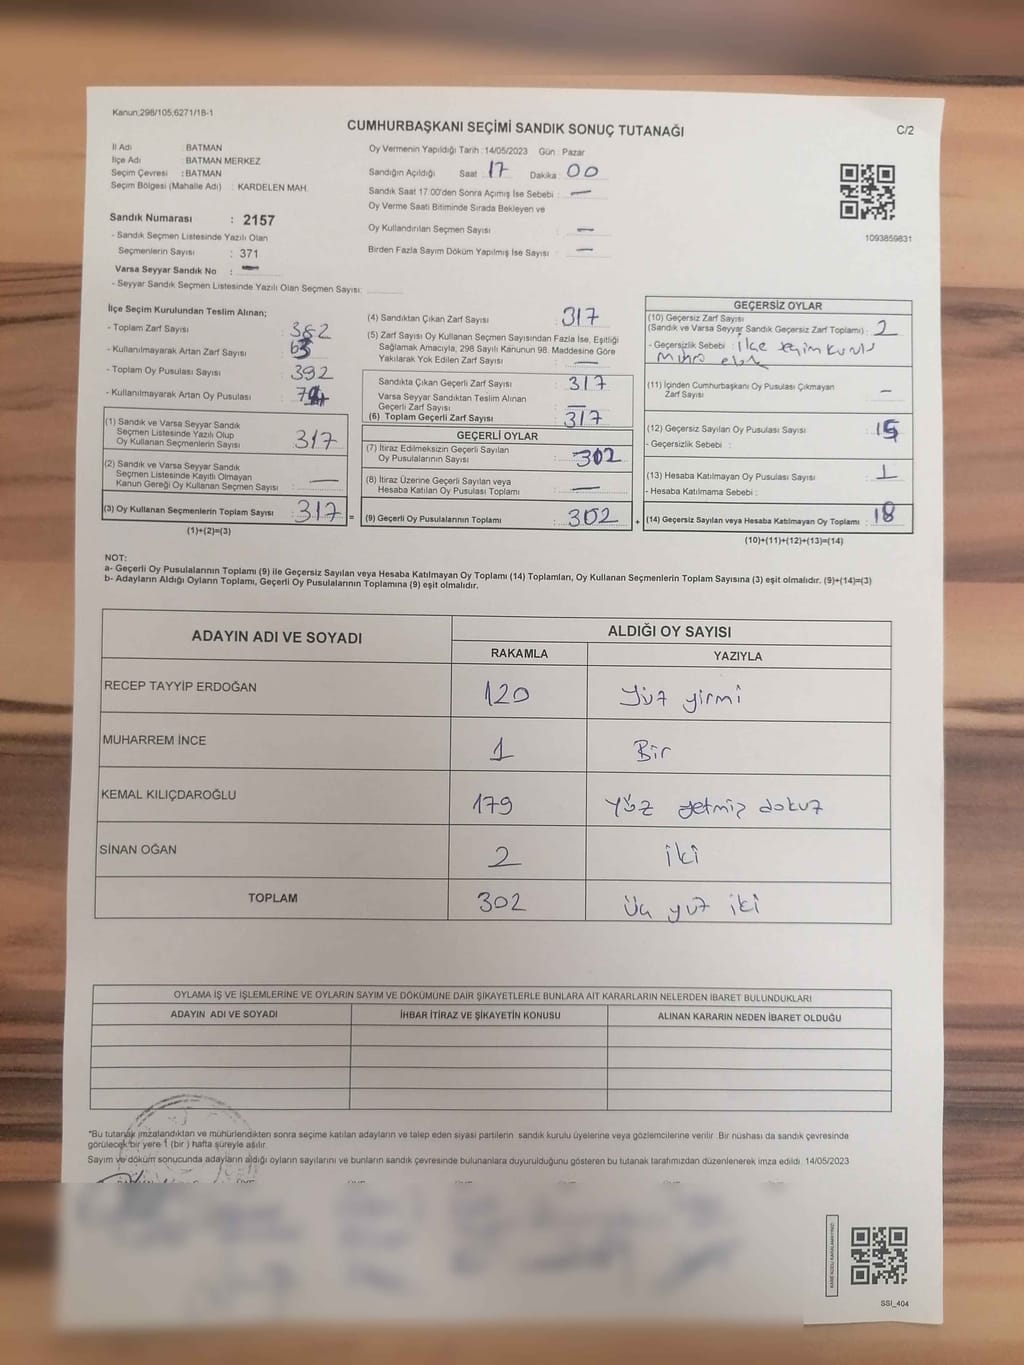 Kanun.298/105,6271/18-1
CUMHURBAŞKANI SEÇİMİ SANDIK SONUÇ TUTANAĞI
C/2
İl Adı : BATMAN
İlçe Adı : BATMAN MERKEZ
Seçim Çevresi : BATMAN
Seçim Bölgesi (Mahalle Adı) : KARDELEN MAH.
Sandık Numarası : 2157
- Sandık Seçmen Listesinde Yazılı Olan
Seçmenlerin Sayısı : 371
Varsa Seyyar Sandık No : —
- Seyyar Sandık Seçmen Listesinde Yazılı Olan Seçmen Sayısı:
Oy Vermenin Yapıldığı Tarih :14/05/2023 Gün : Pazar
Sandığın Açıldığı Saat 17 Dakika 00
Sandık Saat 17:00'den Sonra Açımış İse Sebebi : —
Oy Verme Saati Bitiminde Sırada Bekleyen ve
Oy Kullandırılan Seçmen Sayısı : —
Birden Fazla Sayım Döküm Yapılmış İse Sayısı : —
1093859831
İlçe Seçim Kurulundan Teslim Alınan;
- Toplam Zarf Sayısı : 382
- Kullanılmayarak Artan Zarf Sayısı :
- Toplam Oy Pusulası Sayısı : 392
- Kullanılmayarak Artan Oy Pusulası :
(1) Sandık ve Varsa Seyyar Sandık
Seçmen Listesinde Yazılı Olup
Oy Kullanan Seçmenlerin Sayısı : 317
(2) Sandık ve Varsa Seyyar Sandık
Seçmen Listesinde Kayıtlı Olmayan
Kanun Gereği Oy Kullanan Seçmen Sayısı : —
(3) Oy Kullanan Seçmenlerin Toplam Sayısı : 317
(1)+(2)=(3)
(4) Sandıktan Çıkan Zarf Sayısı : 317
(5) Zarf Sayısı Oy Kullanan Seçmen Sayısından Fazla İse, Eşitliği
Sağlamak Amacıyla, 298 Sayılı Kanunun 98. Maddesine Göre
Yakılarak Yok Edilen Zarf Sayısı : —
Sandıkta Çıkan Geçerli Zarf Sayısı : 317
Varsa Seyyar Sandıktan Teslim Alınan
Geçerli Zarf Sayısı : —
(6) Toplam Geçerli Zarf Sayısı : 317
GEÇERLİ OYLAR
(7) İtiraz Edilmeksizin Geçerli Sayılan
Oy Pusulalarının Sayısı : 302
(8) İtiraz Üzerine Geçerli Sayılan veya
Hesaba Katılan Oy Pusulası Toplamı : —
= (9) Geçerli Oy Pusulalarının Toplamı : 302
GEÇERSİZ OYLAR
(10) Geçersiz Zarf Sayısı
(Sandık ve Varsa Seyyar Sandık Geçersiz Zarf Toplamı) : 2
- Geçersizlik Sebebi : ilçe seçim kurulu
(11) İçinden Cumhurbaşkanı Oy Pusulası Çıkmayan
Zarf Sayısı : —
(12) Geçersiz Sayılan Oy Pusulası Sayısı : 15
- Geçersizlik Sebebi :
(13) Hesaba Katılmayan Oy Pusulası Sayısı : 1
- Hesaba Katılmama Sebebi :
+ (14) Geçersiz Sayılan veya Hesaba Katılmayan Oy Toplamı : 18
(10)+(11)+(12)+(13)=(14)
NOT:
a- Geçerli Oy Pusulalarının Toplamı (9) ile Geçersiz Sayılan veya Hesaba Katılmayan Oy Toplamı (14) Toplamları, Oy Kullanan Seçmenlerin Toplam Sayısına (3) eşit olmalıdır. (9)+(14)=(3)
b- Adayların Aldığı Oyların Toplamı, Geçerli Oy Pusulalarının Toplamına (9) eşit olmalıdır.
ADAYIN ADI VE SOYADI ALDIĞI OY SAYISI
RAKAMLA YAZIYLA
RECEP TAYYİP ERDOĞAN 120 Yüz yirmi
MUHARREM İNCE 1 Bir
KEMAL KILIÇDAROĞLU 179 Yüz yetmiş dokuz
SİNAN OĞAN 2 iki
TOPLAM 302 Üç yüz iki
OYLAMA İŞ VE İŞLEMLERİNE VE OYLARIN SAYIM VE DÖKÜMÜNE DAİR ŞİKAYETLERLE BUNLARA AİT KARARLARIN NELERDEN İBARET BULUNDUKLARI
ADAYIN ADI VE SOYADI İHBAR İTİRAZ VE ŞİKAYETİN KONUSU ALINAN KARARIN NEDEN İBARET OLDUĞU
*Bu tutanak imzalandıktan ve mühürlendikten sonra seçime katılan adayların ve talep eden siyasi partilerin sandık kurulu üyelerine veya gözlemcilerine verilir. Bir nüshası da sandık çevresinde
görülecek bir yere 1 (bir) hafta süreyle asılır.
Sayım ve döküm sonucunda adayların aldığı oyların sayılarını ve bunların sandık çevresinde bulunanlara duyurulduğunu gösteren bu tutanak tarafımızdan düzenlenerek imza edildi. 14/05/2023
SSI_404